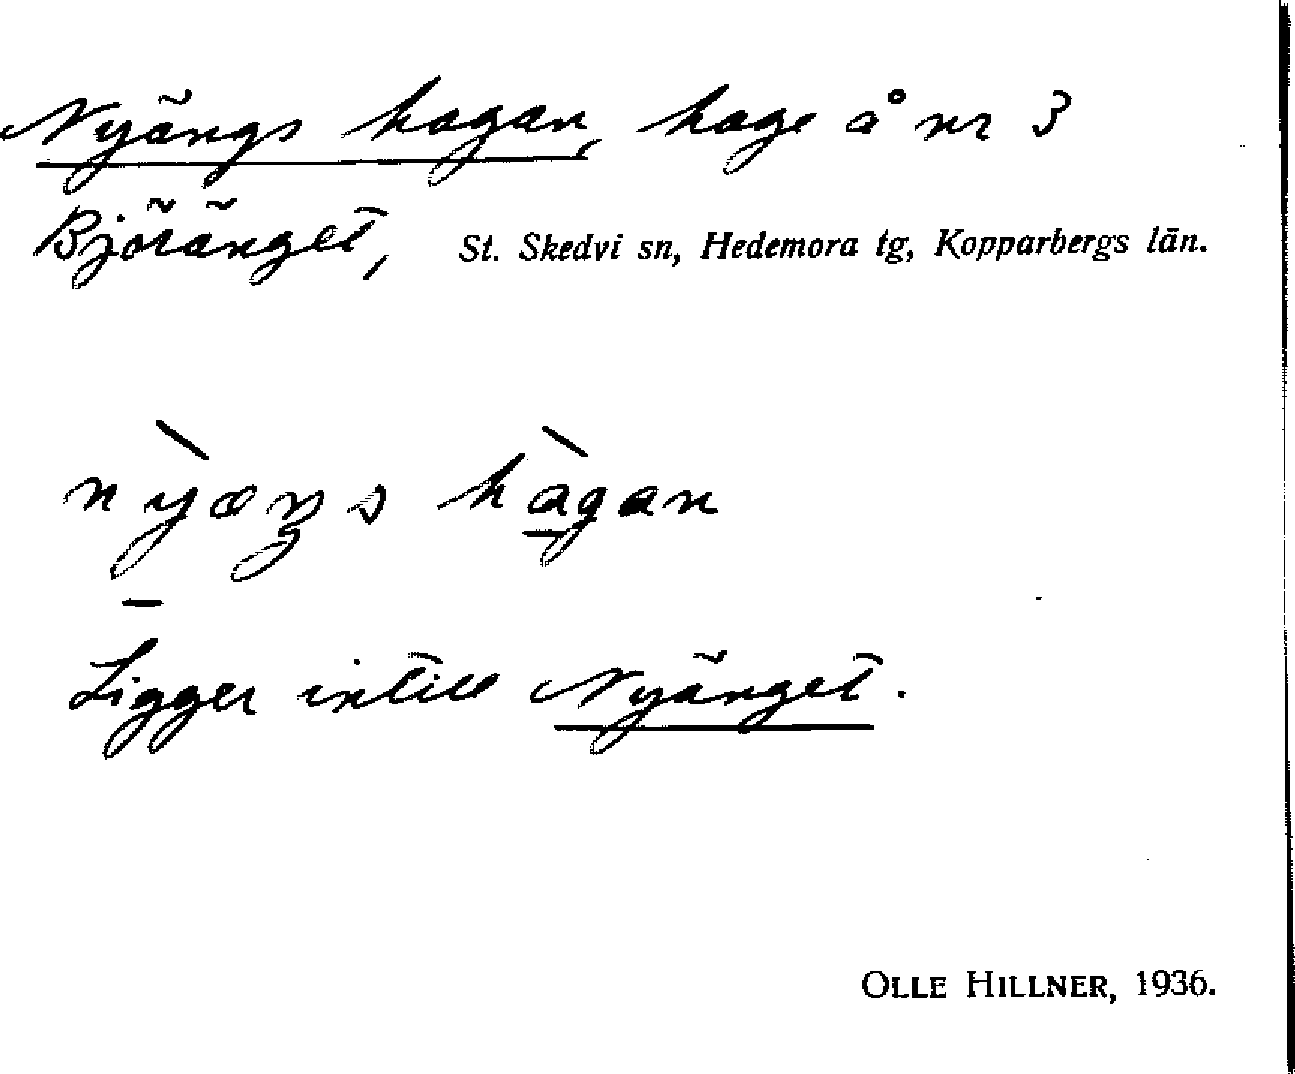 Nyängs hagan, hage å nr 3
Björänget, St. Skedvi sn, Hedemora tg, Kopparbergs län.
nỳæŋs hàgan
Ligger intill Nyänget.
OLLE HILLNER, 1936.